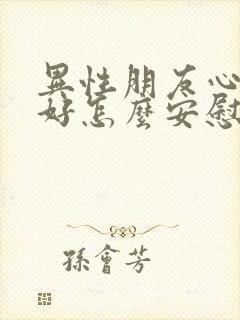 異性朋友心
好怎麼安慰
孫會芳